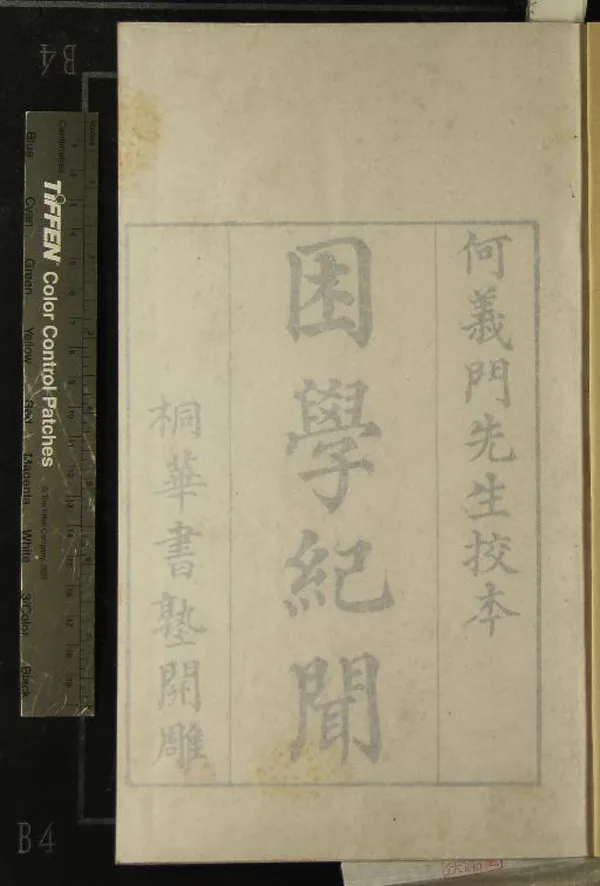 何義門先生挍本
困學紀聞
桐華書塾開雕
B4
TIFFEN Color Control Patches
© The Tiffen Company, 2000
Centimetres
Inches
Blue
Cyan
Green
Yellow
Red
Magenta
White
3/Color
Black
B4